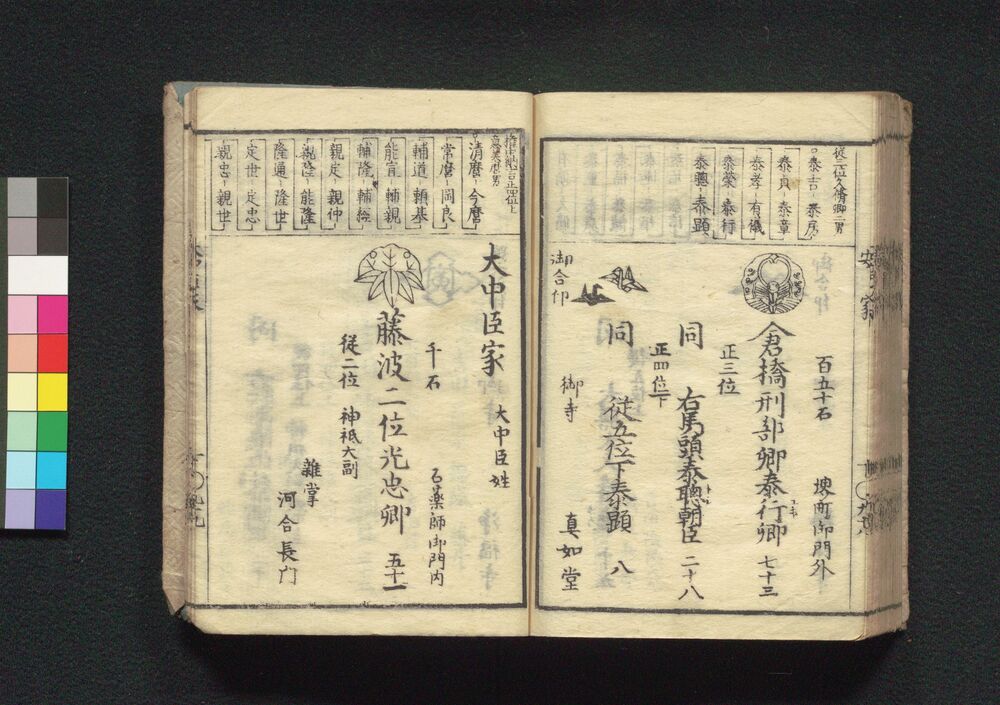 従二位久脩卿二男
泰吉 泰房
泰貞 泰章
泰孝 有儀
泰榮 泰行
泰聰 泰顕
百五十石 堺町御門外
倉橋刑部卿泰行卿 七十三
正三位
同 右馬頭泰聰朝臣 二十八
正四位下
同 従五位下泰顕 八
御合印
御寺 真如堂
清麿 今麿
常麿 岡良
輔道 頼基
能宣 輔親
輔隆 輔経
親定 親仲
親隆 能隆
隆通 隆世
定世 定忠
親忠 親世
大中臣家 大中臣姓
千石 石薬師御門内
藤波二位光忠卿 五十一
従二位 神祇大副
雑掌
河合長門